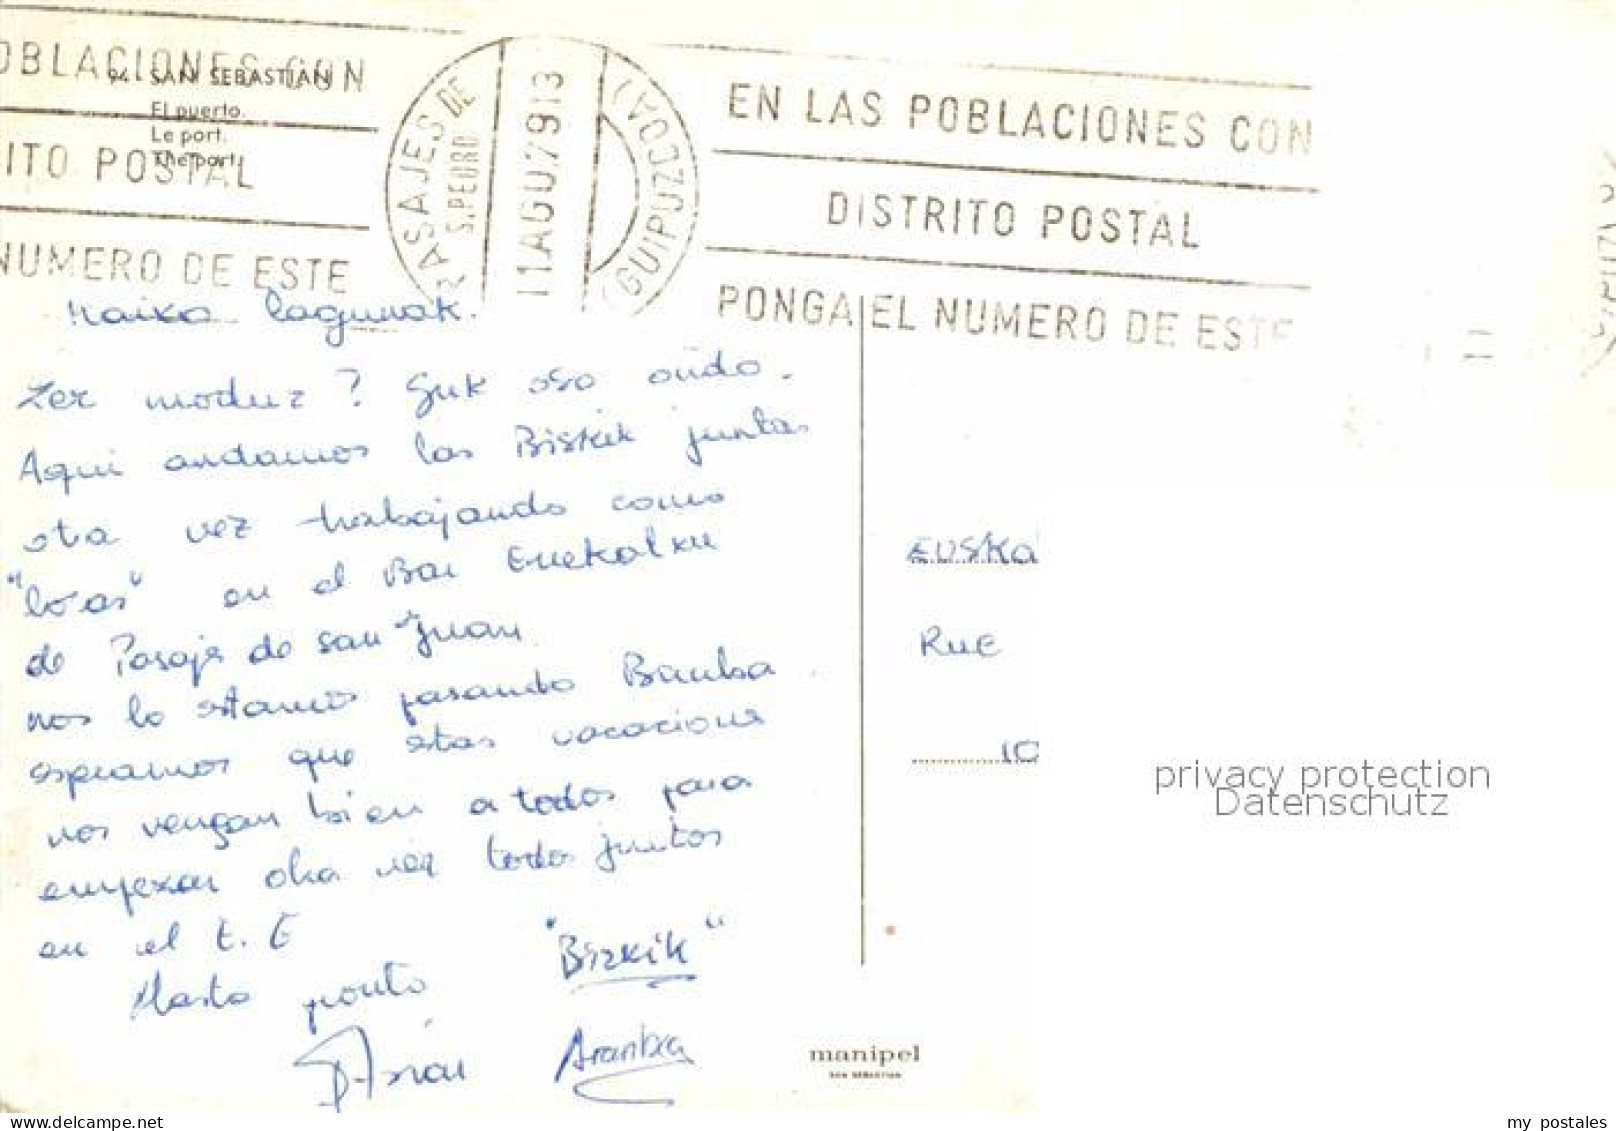 OBLACIONES CON
ITO POSTAL
NUMERO DE ESTE
94 - SAN SEBASTIAN
El puerto.
Le port.
The port.
PASAJES DE
S. PEDRO
11 AGO 79 13
(GUIPUZCOA)
EN LAS POBLACIONES CON
DISTRITO POSTAL
PONGA EL NUMERO DE ESTE
Kaixo lagunak.
Zer moduz? Guk oso ondo.
Aqui andamos las Bizkik juntas
otra vez trabajando como
"locas" en el Bar
de Pasajes de San Juan
nos lo estamos pasando Bamba
esperamos que estas vacaciones
nos vengan bien a todos para
empezar otra vez todos juntos
en el t. E
Hasta pronto "Bizkik"
Arantxa
EUSKA
Rue
10
privacy protection
Datenschutz
manipel
SAN SEBASTIAN
my postales